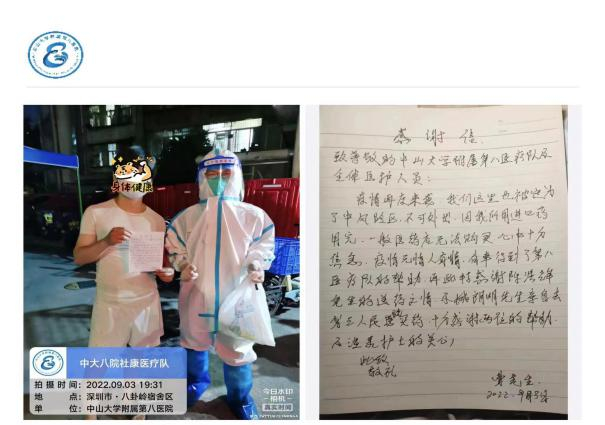 身体健康
中大八院社康医疗队
拍 摄 时 间：2022.09.03 19:31
地 点：深圳市·八卦岭宿舍区
单 位：中山大学附属第八医院
今日水印
相机
真实时间
感 谢 信
致尊敬的中山大学附属第八医疗队及
全体医护人员：
疫情再度来袭，我们这里也被定为
了中风险区，不可外出，因我所用进口药
用完，一般医药店无法购买，心中十分
焦急，疫情无情人有情，有幸得到了第八
医疗队的帮助，再此特感谢陈
先生的送药之情，先生亲自去
第三人民医院买药，十万感谢两位的帮助
及 护士的关心！
此致
敬礼
2022.9月3